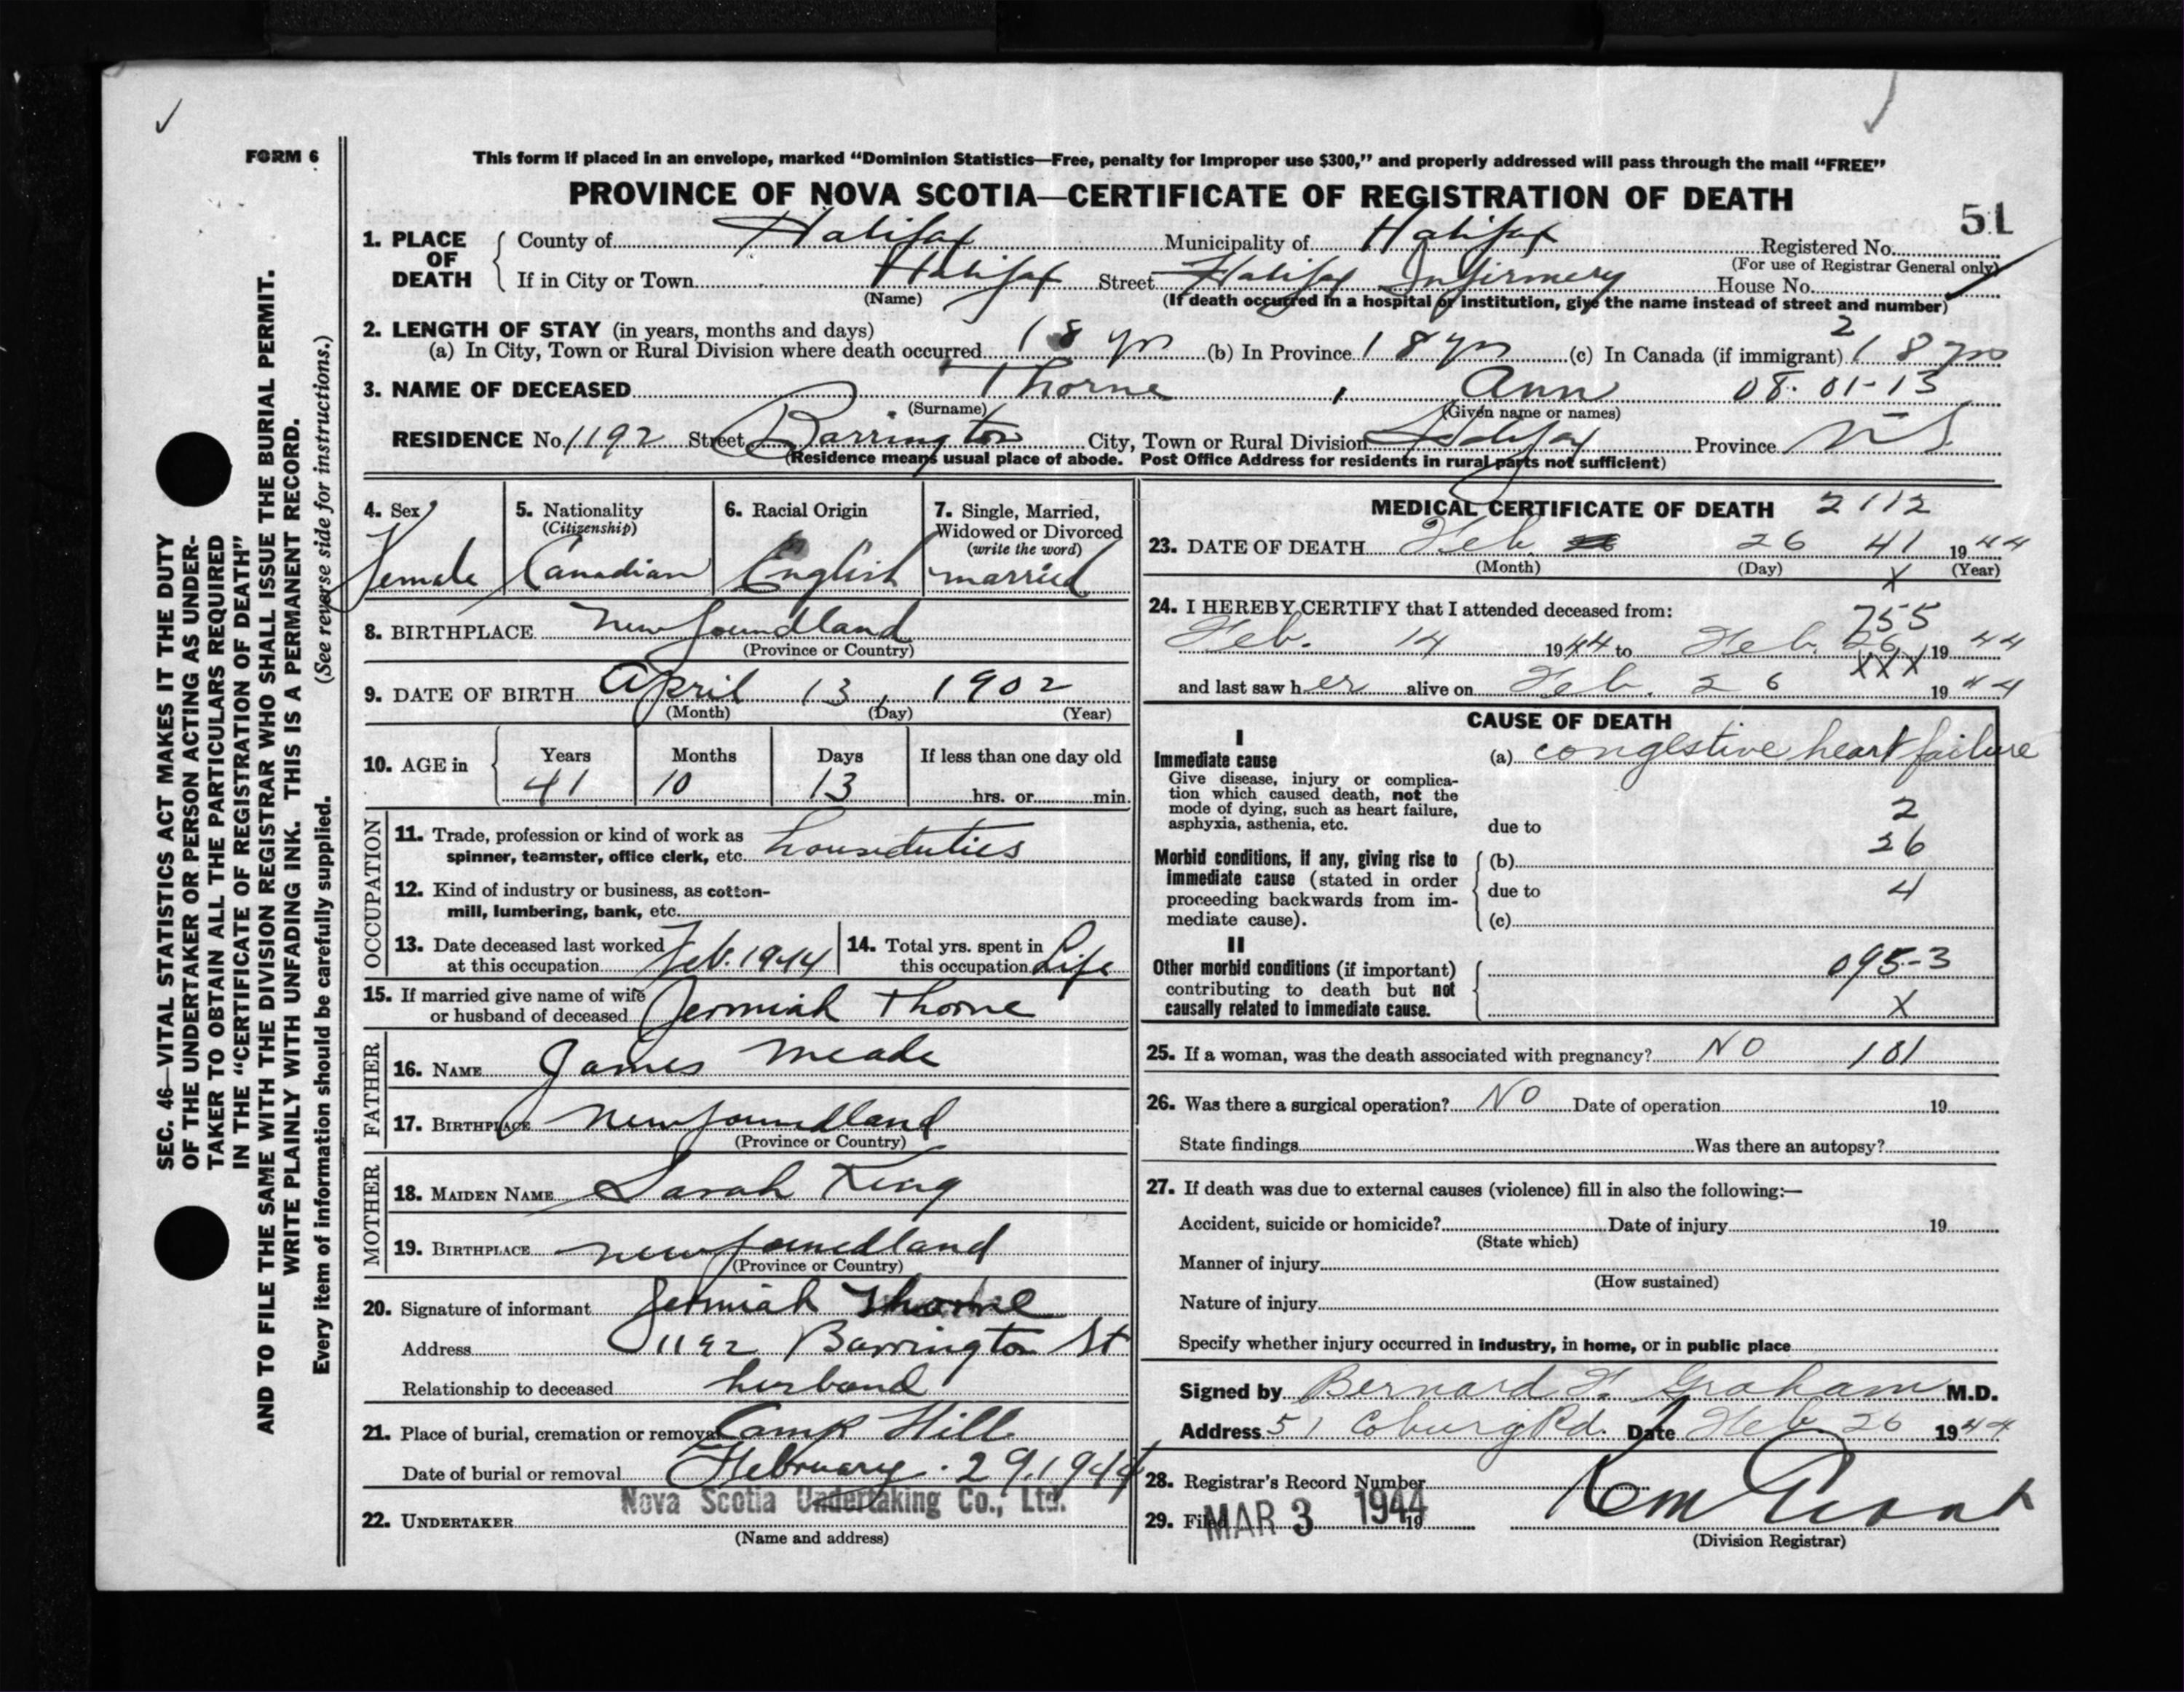 FORM 6
SEC. 46—VITAL STATISTICS ACT MAKES IT THE DUTY
OF THE UNDERTAKER OR PERSON ACTING AS UNDER-
TAKER TO OBTAIN ALL THE PARTICULARS REQUIRED
IN THE "CERTIFICATE OF REGISTRATION OF DEATH"
AND TO FILE THE SAME WITH THE DIVISION REGISTRAR WHO SHALL ISSUE THE BURIAL PERMIT.
WRITE PLAINLY WITH UNFADING INK. THIS IS A PERMANENT RECORD.
Every item of information should be carefully supplied. (See reverse side for instructions.)
This form if placed in an envelope, marked "Dominion Statistics—Free, penalty for improper use $300," and properly addressed will pass through the mail "FREE"
PROVINCE OF NOVA SCOTIA—CERTIFICATE OF REGISTRATION OF DEATH
51
1. PLACE OF DEATH County of Halifax Municipality of Halifax Registered No.
(For use of Registrar General only)
If in City or Town Halifax Street Halifax Infirmery House No.
(Name) (If death occurred in a hospital or institution, give the name instead of street and number)
2. LENGTH OF STAY (in years, months and days) 2
(a) In City, Town or Rural Division where death occurred 18 yrs (b) In Province 18 yrs (c) In Canada (if immigrant) 18 yrs
3. NAME OF DECEASED Thorne, Ann 08-01-13
(Surname) (Given name or names)
RESIDENCE No. 1192 Street Barrington City, Town or Rural Division Halifax Province N.S.
(Residence means usual place of abode. Post Office Address for residents in rural parts not sufficient)
4. Sex 5. Nationality 6. Racial Origin 7. Single, Married,
(Citizenship) Widowed or Divorced
(write the word)
Female Canadian English married
8. BIRTHPLACE Newfoundland
(Province or Country)
9. DATE OF BIRTH April 13, 1902
(Month) (Day) (Year)
10. AGE in Years Months Days If less than one day old
41 10 13 hrs. or min.
OCCUPATION
11. Trade, profession or kind of work as
spinner, teamster, office clerk, etc. houseduties
12. Kind of industry or business, as cotton-
mill, lumbering, bank, etc.
13. Date deceased last worked
at this occupation Feb. 1944
14. Total yrs. spent in
this occupation Life
15. If married give name of wife
or husband of deceased Jermiah Thorne
FATHER
16. NAME James Meade
17. BIRTHPLACE Newfoundland
(Province or Country)
MOTHER
18. MAIDEN NAME Sarah King
19. BIRTHPLACE newfoundland
(Province or Country)
20. Signature of informant Jermiah Thorne
Address 1192 Barrington St
Relationship to deceased husband
21. Place of burial, cremation or removal Camp Hill
Date of burial or removal February 29, 1944
Nova Scotia Undertaking Co., Ltd.
22. UNDERTAKER
(Name and address)
MEDICAL CERTIFICATE OF DEATH 2112
23. DATE OF DEATH Feb. 26 41 1944
(Month) (Day) X (Year)
24. I HEREBY CERTIFY that I attended deceased from: 755
Feb. 14 1944 to Feb. 26 1944
XXX
and last saw her alive on Feb. 26 1944
CAUSE OF DEATH
I
Immediate cause (a) congestive heart failure
Give disease, injury or complica-
tion which caused death, not the
mode of dying, such as heart failure,
asphyxia, asthenia, etc. due to 2
Morbid conditions, if any, giving rise to (b) 26
immediate cause (stated in order
proceeding backwards from im- due to 4
mediate cause). (c)
II
Other morbid conditions (if important) 095-3
contributing to death but not
causally related to immediate cause. X
25. If a woman, was the death associated with pregnancy? NO 181
26. Was there a surgical operation? NO Date of operation 19
State findings Was there an autopsy?
27. If death was due to external causes (violence) fill in also the following:—
Accident, suicide or homicide? Date of injury 19
(State which)
Manner of injury
(How sustained)
Nature of injury
Specify whether injury occurred in industry, in home, or in public place
Signed by Bernard F. Graham M.D.
Address 51 Coburg Rd. Date Feb 26 1944
28. Registrar's Record Number
29. Filed MAR 3 1944 19
(Division Registrar)